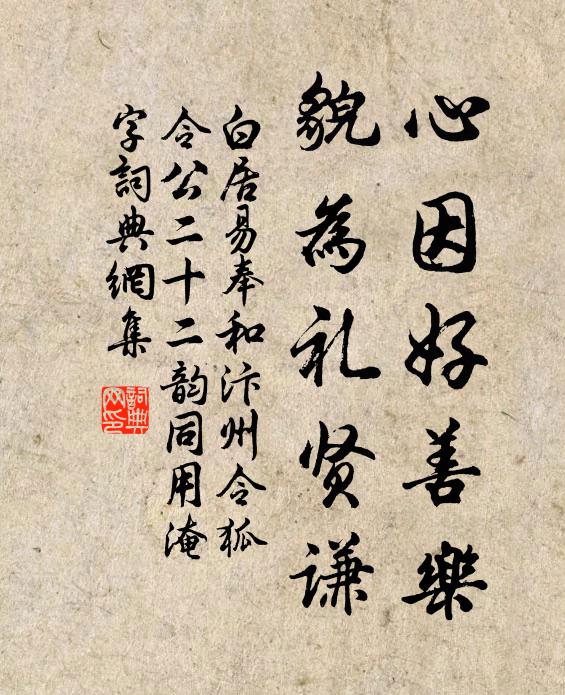 心因好善樂
貌為礼贤谦
白居易奉和汴州令狐
令公二十二韵同用淹
字詞典網集
詞典
网印